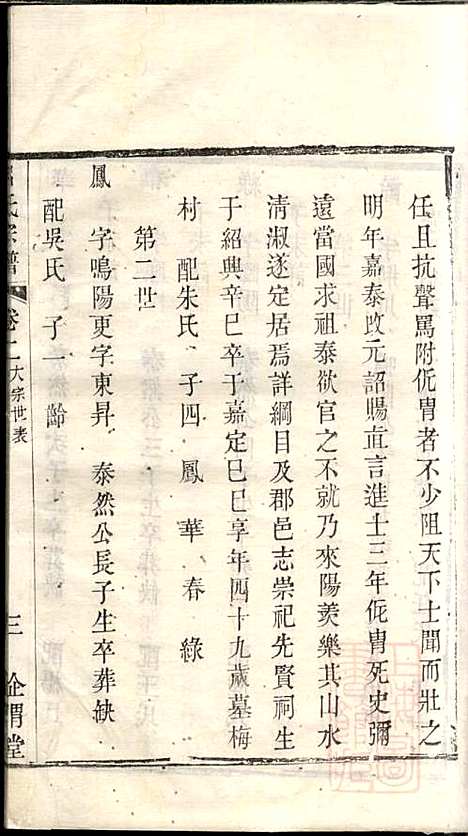 任且抗聲罵附侂冑者不少阻天下士聞而壯之
明年嘉泰改元詔賜直言進士三年侂冑死史彌
遠當國求祖泰欲官之不就乃來陽羨樂其山水
清淑遂定居焉詳綱目及郡邑志崇祀先賢祠生
于紹興辛巳卒于嘉定己巳享年四十九歲墓梅
村 配朱氏 子四 鳳 華 春 綠
第二世
鳳 字鳴陽更字東昇 泰然公長子生卒葬缺
配吳氏 子一 齡
氏宗譜 卷二 大宗世表 三